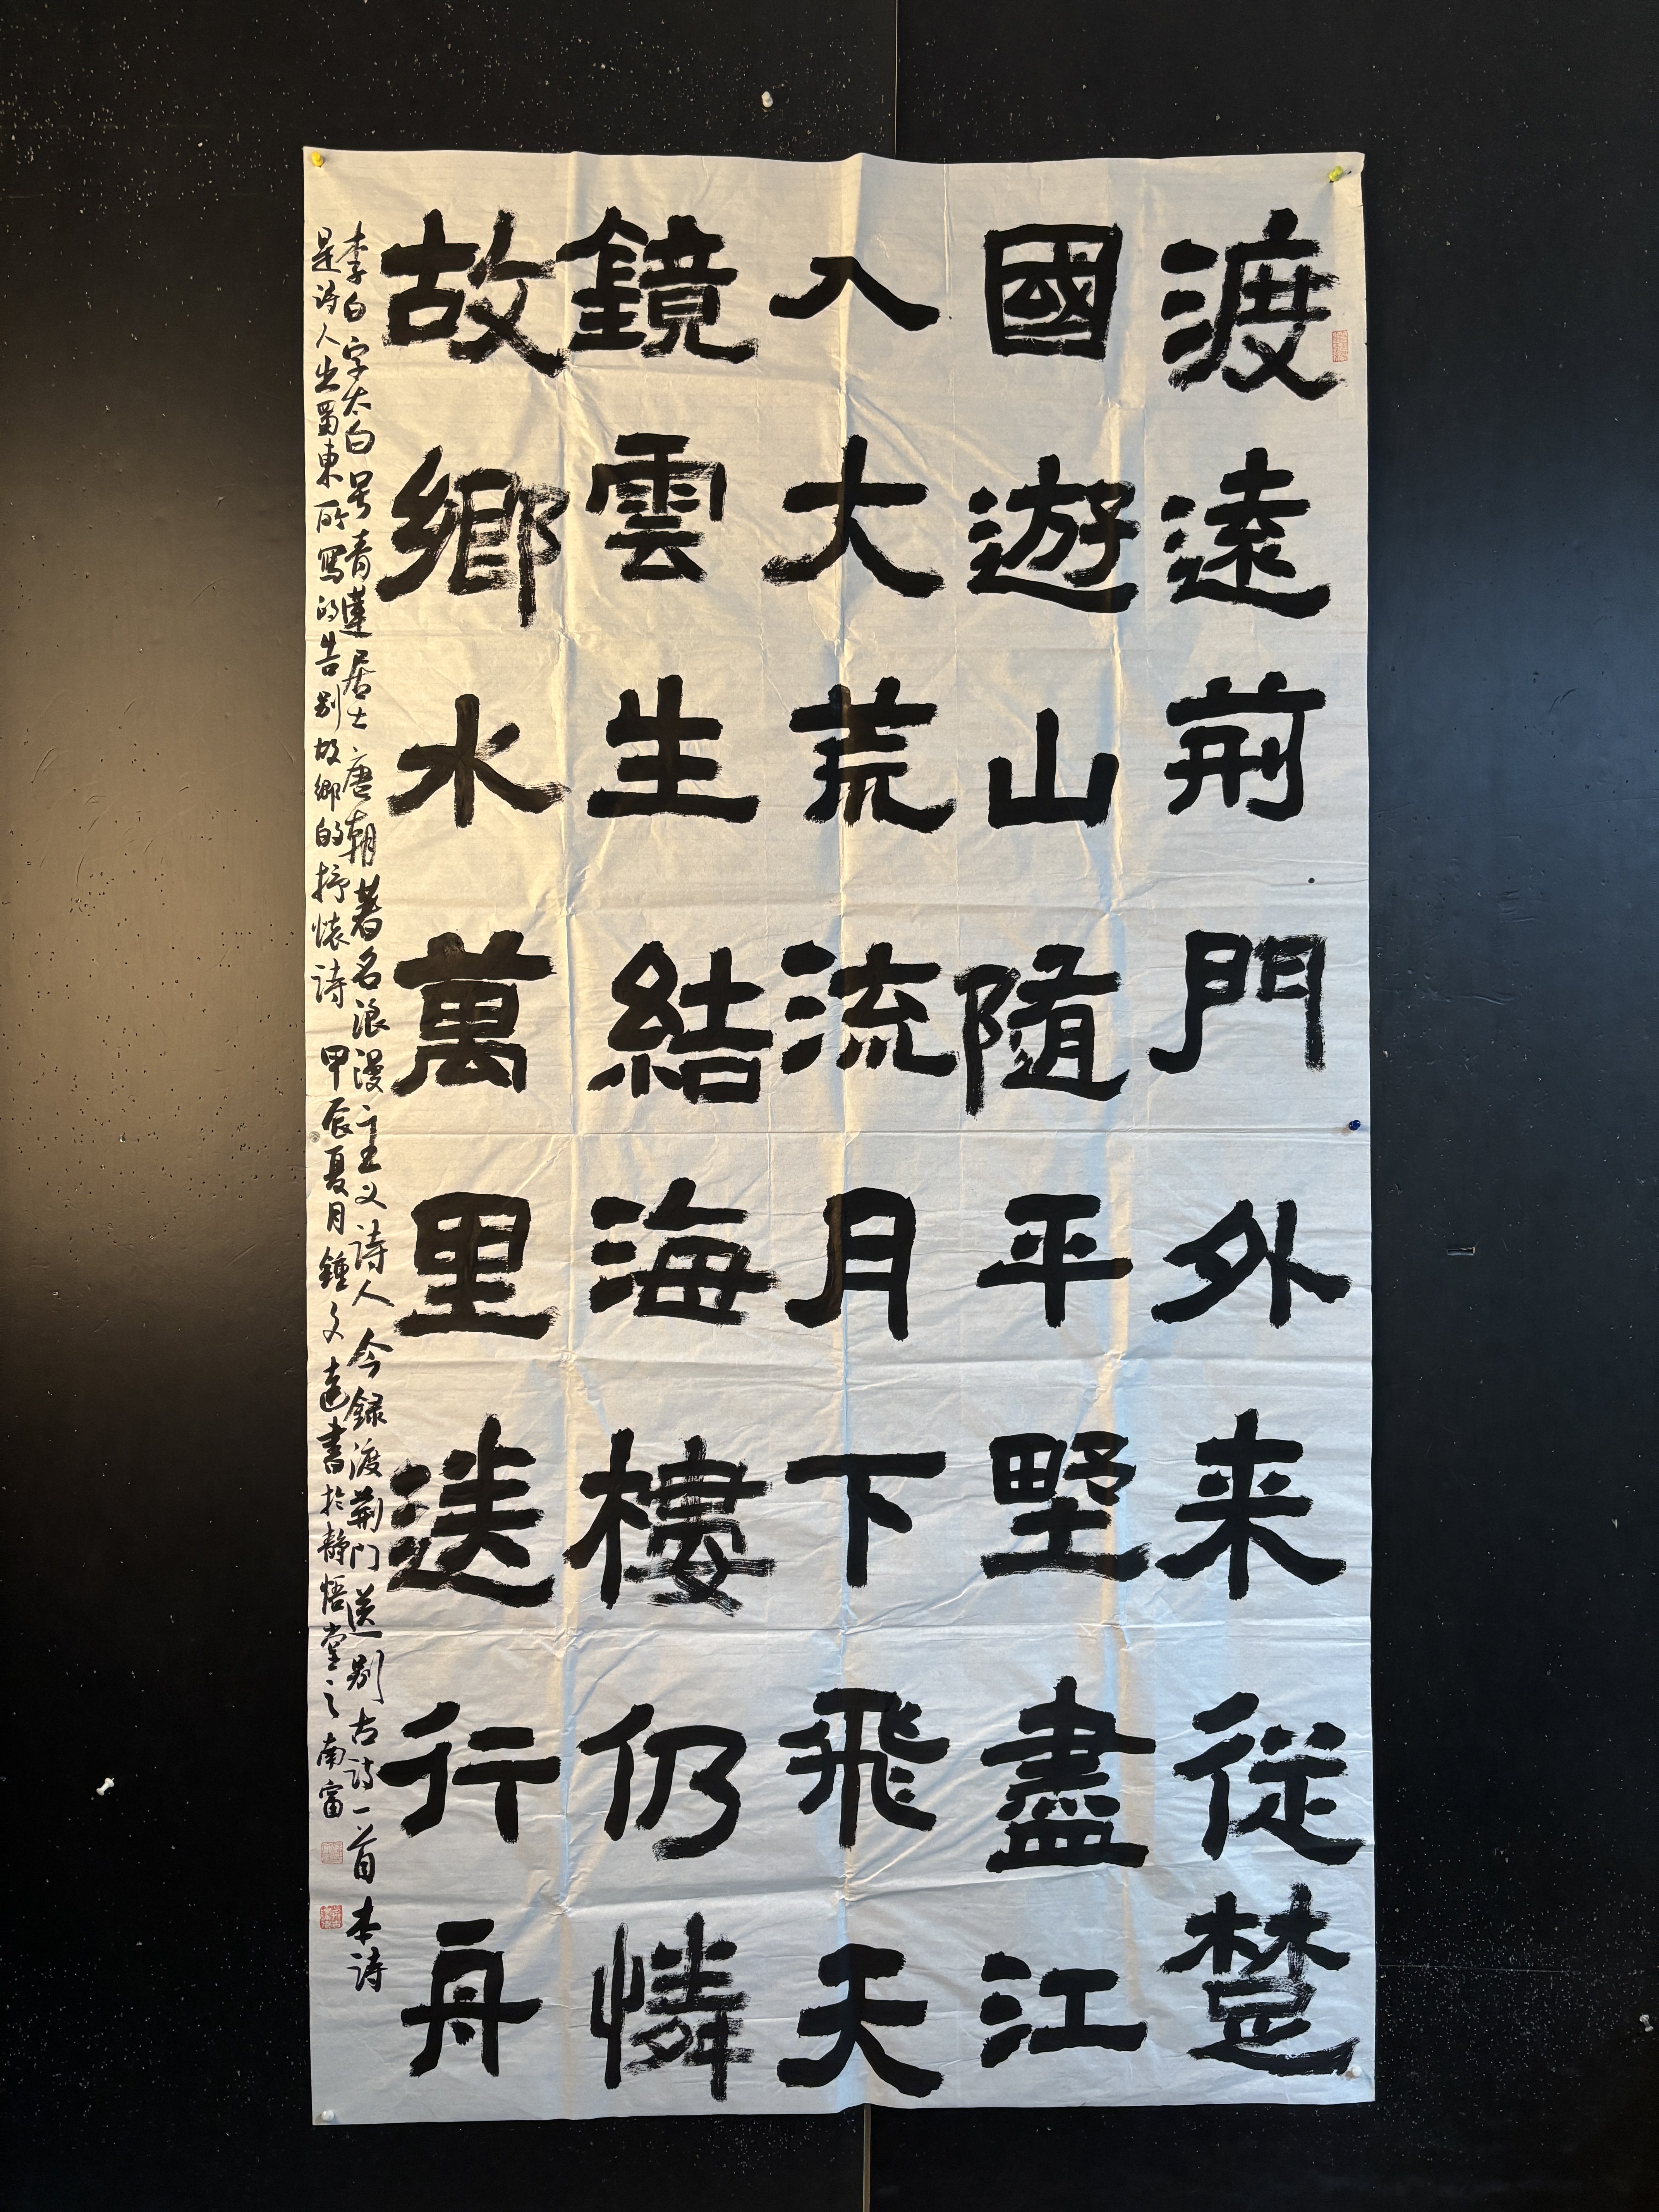 渡遠荊門外来從楚
國遊山隨平野盡江
入大荒流月下飛天
鏡雲生結海樓仍憐
故鄉水萬里送行舟
李白字太白号青蓮居士唐朝著名浪漫主义诗人今録渡荊門送别古詩一首本詩
是诗人出蜀東所寫的告别故鄉的抒懷詩甲辰夏月鍾文達書於靜悟堂之南窗